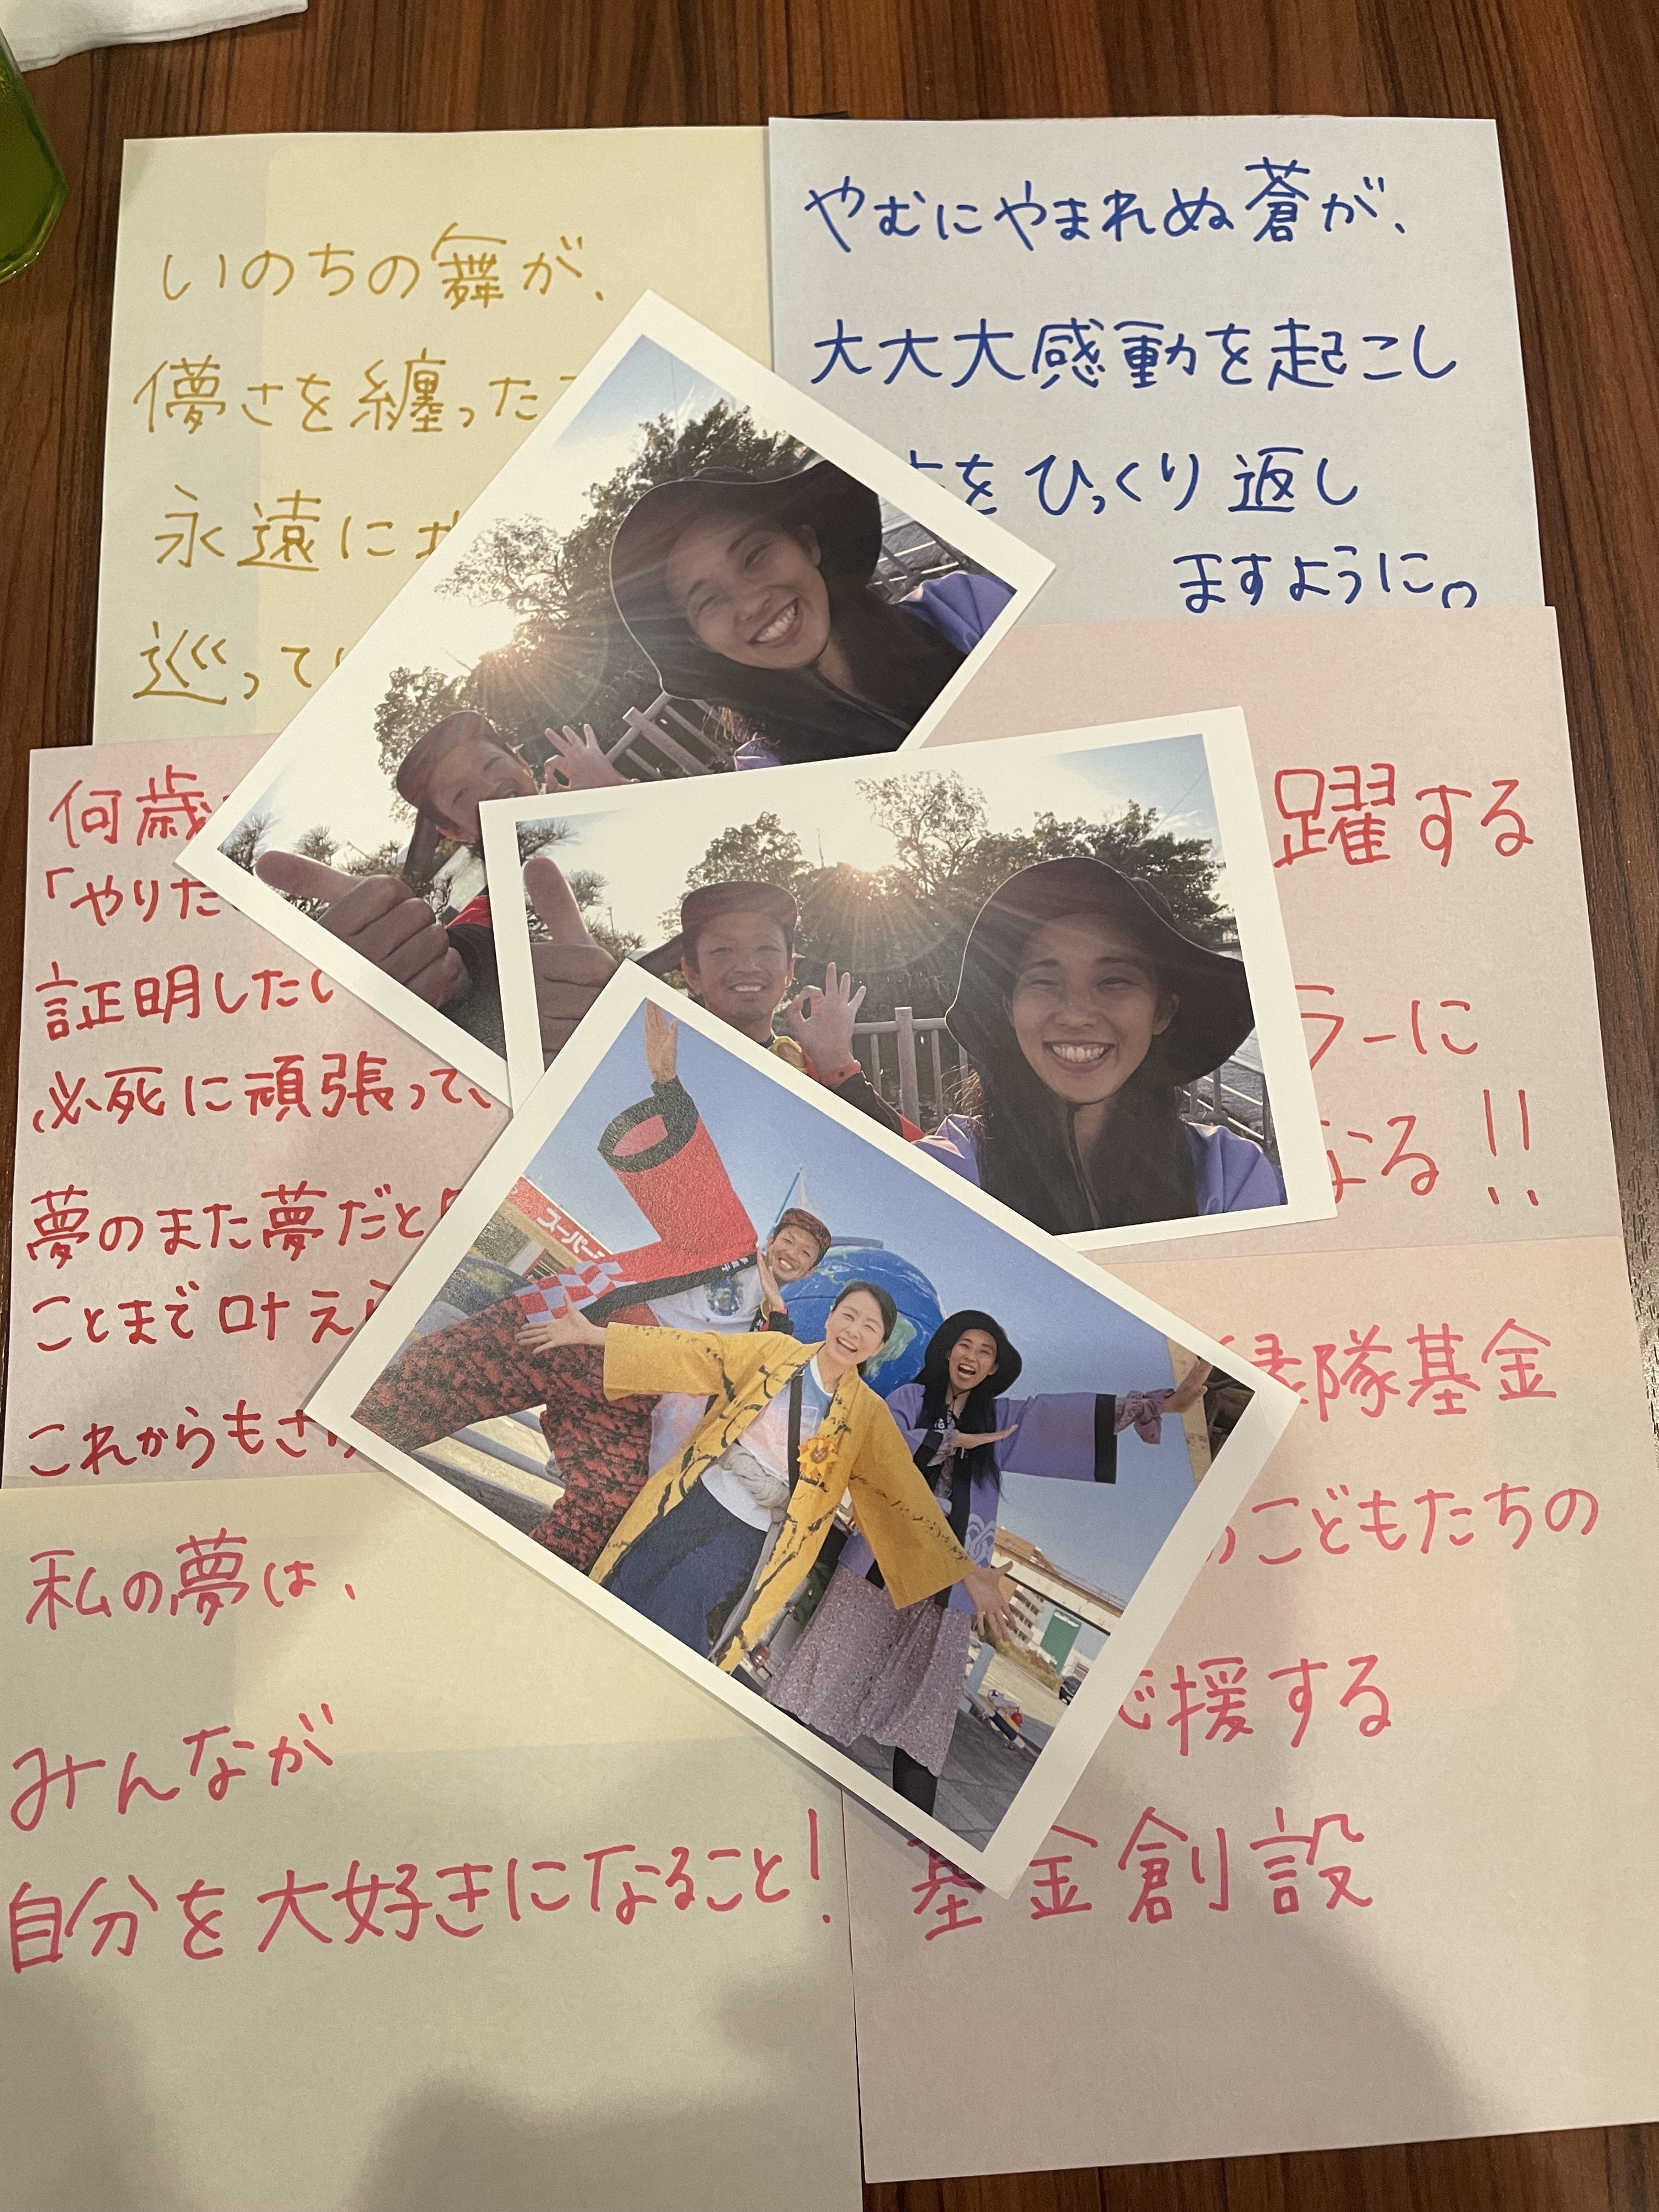 いのちの舞が、
儚さを纏った
永遠に
巡って
やむにやまれぬ蒼が、
大大大感動を起こし
をひっくり返し
ますように。
何歳
「やりた
証明したい
必死に頑張って、
夢のまた夢だと
ことまで叶え
これからもさ
躍する
ラーに
なる!!
私の夢は、
みんなが
自分を大好きになること!
隊基金
こどもたちの
応援する
基金創設
スーパー